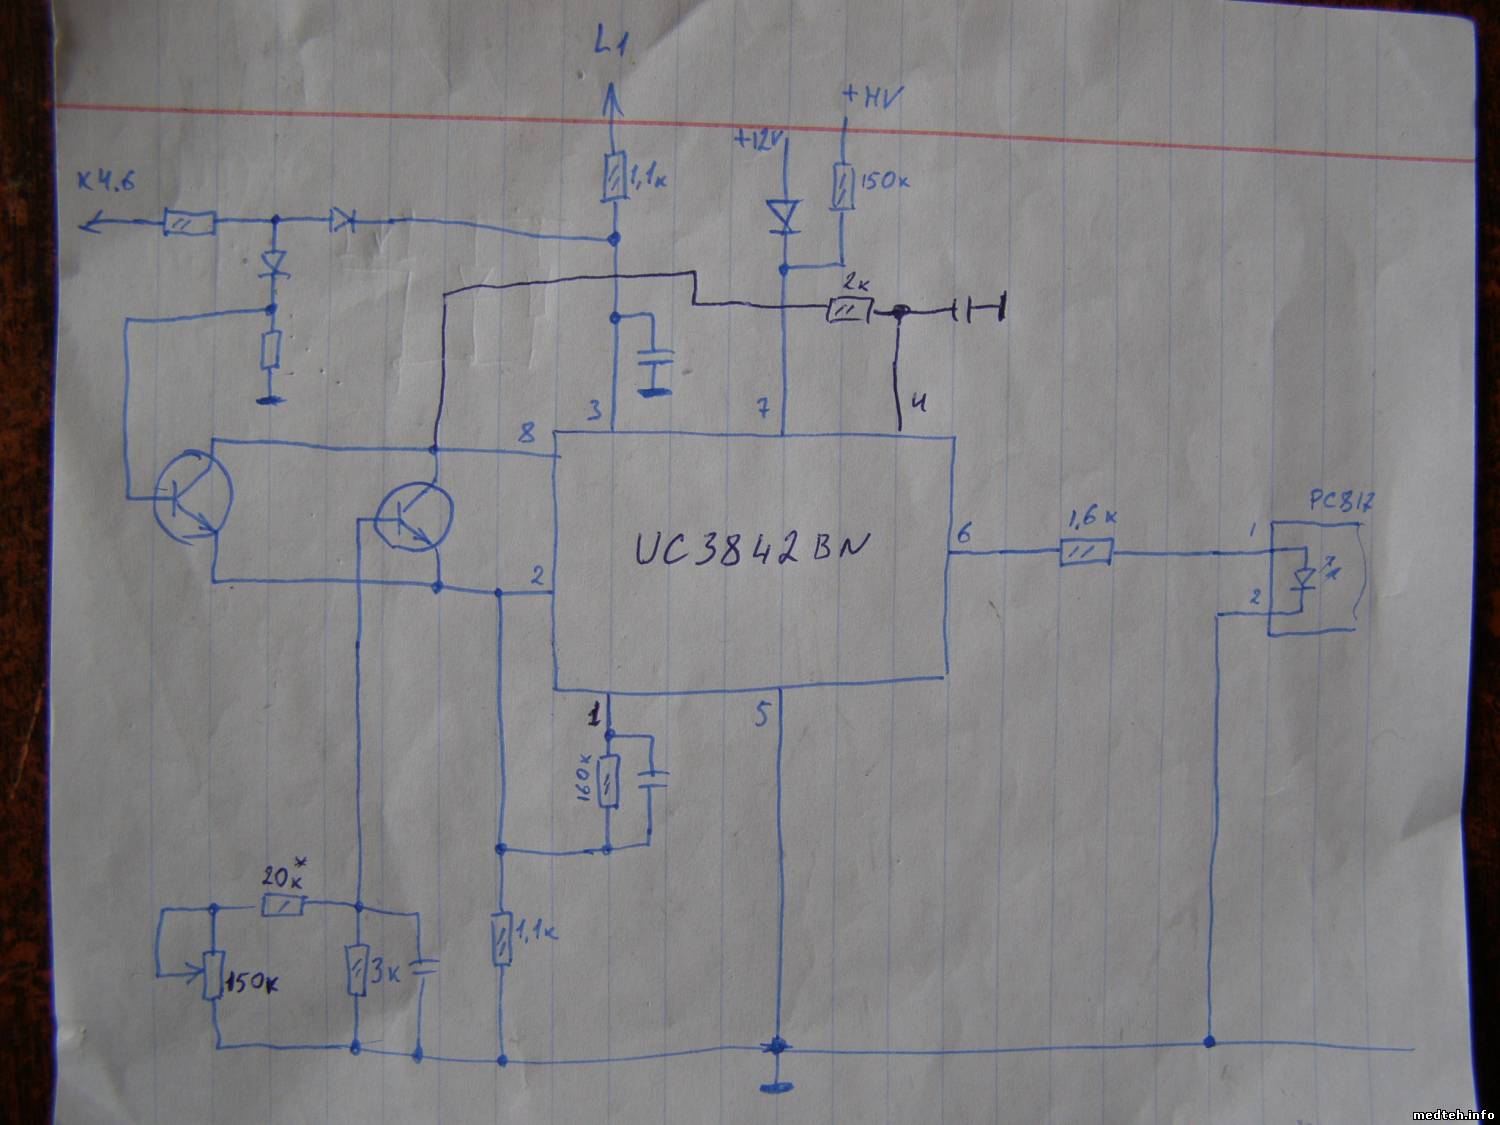 L1
+HV
+12V
K4.6
1,1к
150к
2к
3
7
4
8
UC3842BN
PC817
1
1,6к
6
2
2
1
5
160к
20к*
1,1к
3к
150к
medteh.info